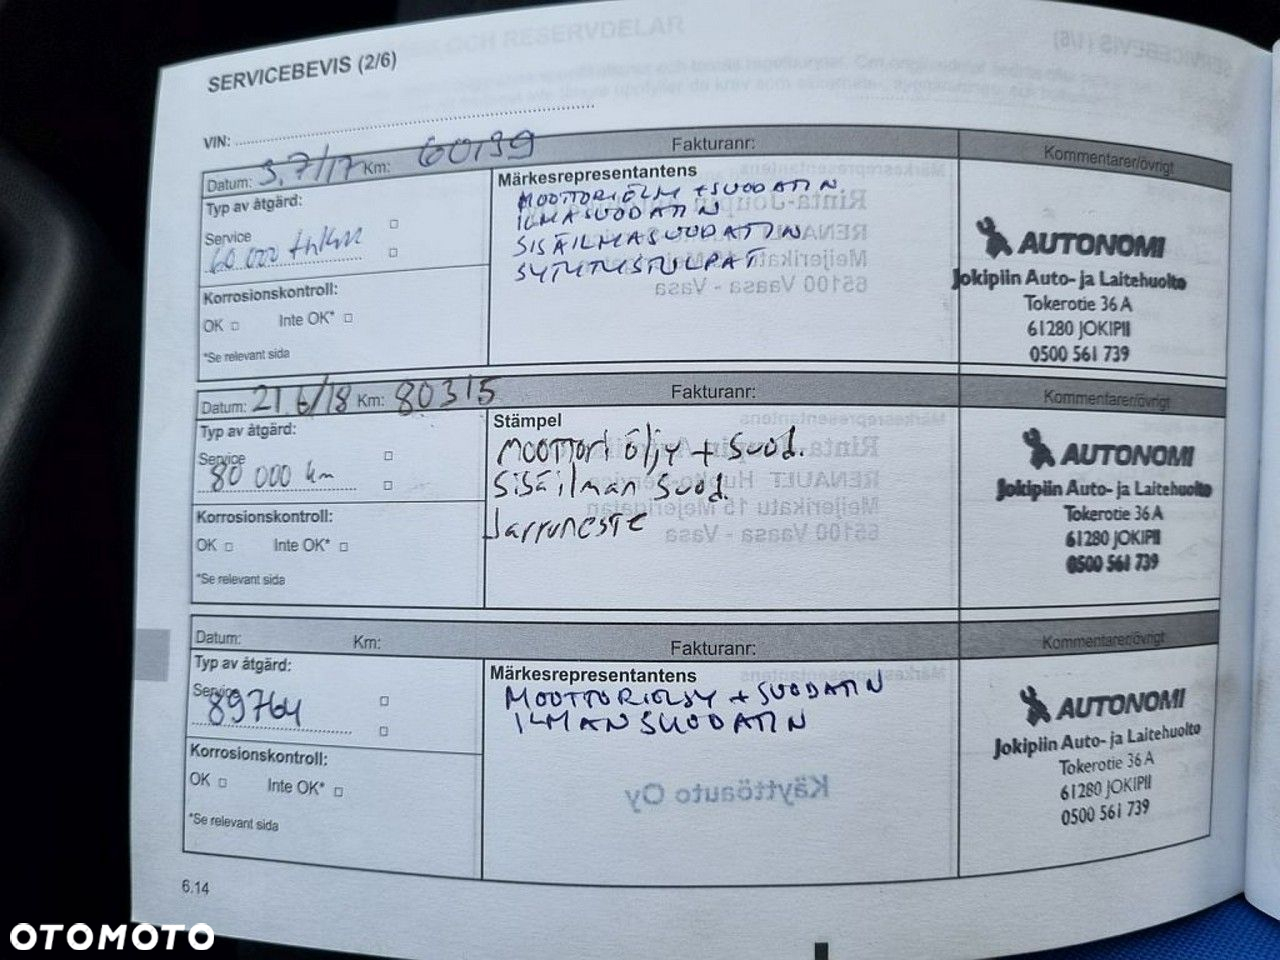 SERVICEBEVIS (2/6)
VIN:
Datum: 3.7/17 Km: 60139 Fakturanr: Kommentarer/övrigt
Typ av åtgärd:
Service
60 000
Korrosionskontroll:
OK □ Inte OK* □
*Se relevant sida
Märkesrepresentantens
MOOTTORIÖLJY + SUODATIN
ILMASUODATIN
SISÄILMASUODATIN
SYTYTYSTULPAT
AUTONOMI
Jokipiin Auto- ja Laitehuolto
Tokerotie 36 A
61280 JOKIPII
0500 561 739
Datum: 21 6/18 Km: 80315 Fakturanr: Kommentarer/övrigt
Typ av åtgärd:
Service
80 000 km
Korrosionskontroll:
OK □ Inte OK* □
*Se relevant sida
Stämpel
Moottori öljy + Suod.
Sisäilman suod.
Jarruneste
AUTONOMI
Jokipiin Auto- ja Laitehuolto
Tokerotie 36 A
61280 JOKIPII
0500 561 739
Datum: Km: Fakturanr: Kommentarer/övrigt
Typ av åtgärd:
Service
89764
Korrosionskontroll:
OK □ Inte OK* □
*Se relevant sida
Märkesrepresentantens
MOOTTORIÖLJY + SUODATIN
ILMANSUODATIN
Käyttöauto Oy
AUTONOMI
Jokipiin Auto- ja Laitehuolto
Tokerotie 36 A
61280 JOKIPII
0500 561 739
6.14
OTOMOTO